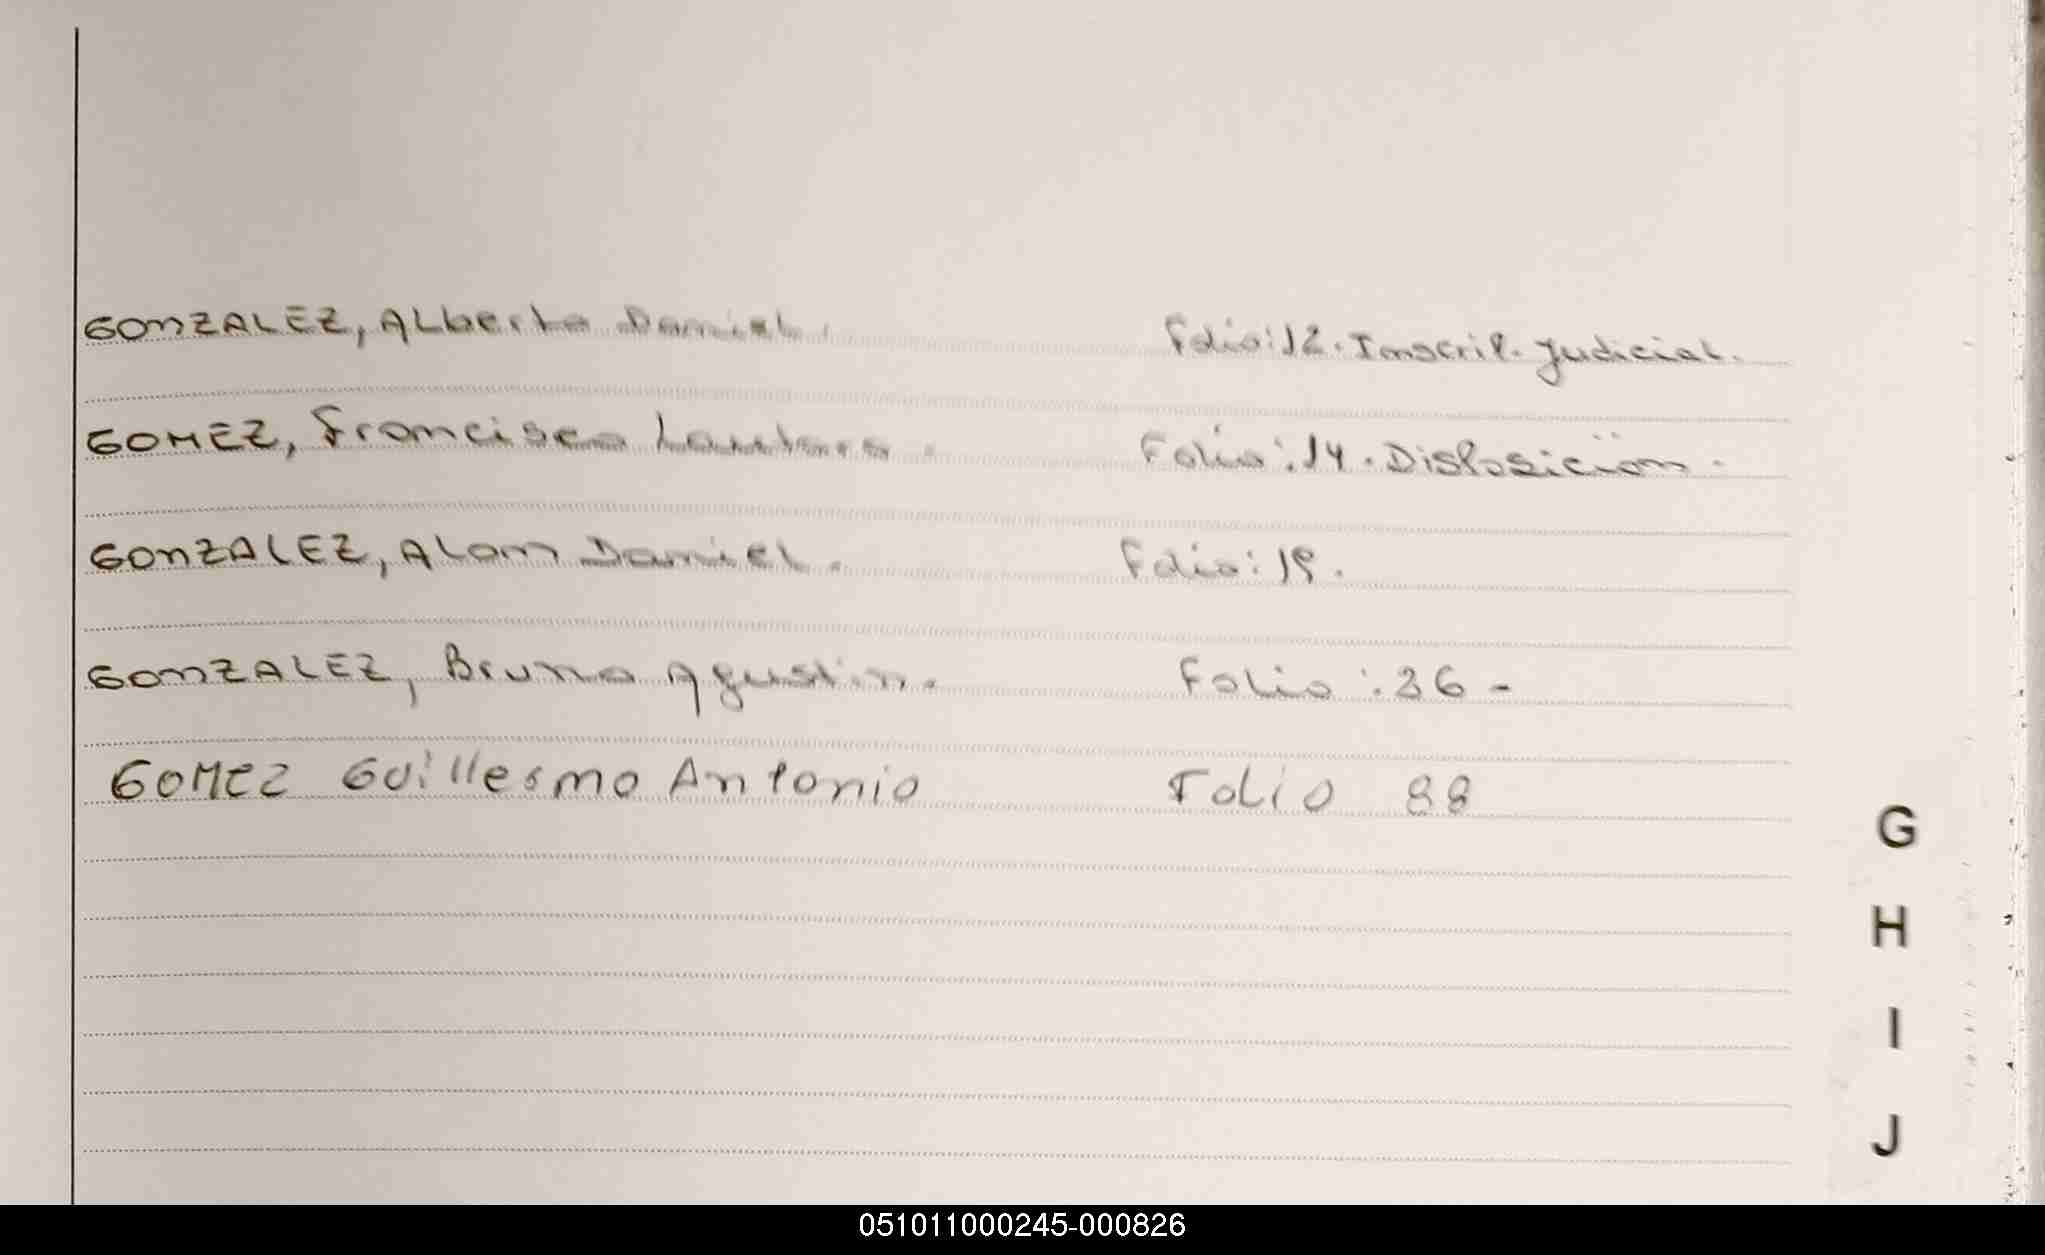 GONZALEZ, ALberto Daniel. Folio: 12. Inscrip. Judicial.
GOMEZ, Francisco Lautaro. Folio: 14. Disposición.
GONZALEZ, Alan Daniel. Folio: 19.
GONZALEZ, Bruno Agustin. Folio: 36 -
GOMEZ Guillermo Antonio Folio 88
G
H
I
J
051011000245-000826